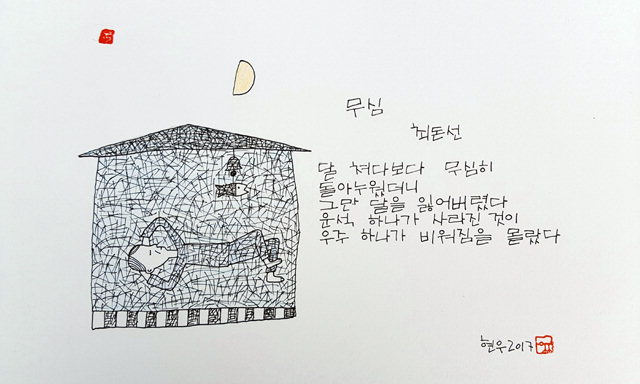 무심
최돈선
달 쳐다보다 무심히
돌아누웠더니
그만 달을 잃어버렸다
운석 하나가 사라진 것이
우주 하나가 비워짐을 몰랐다
현우2017